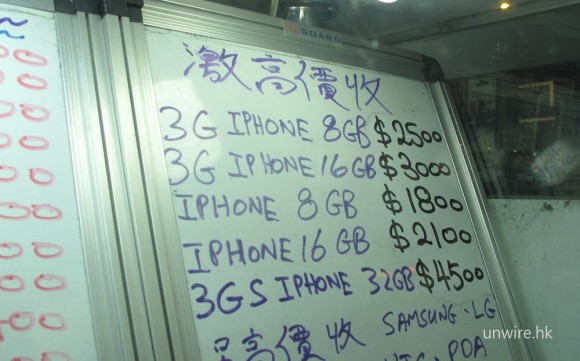 BOARD
激高價收
3G IPHONE 8GB $2500
3G IPHONE 16GB $3000
IPHONE 8 GB $1800
IPHONE 16 GB $2100
3GS IPHONE 32GB $4500
高價收 SAMSUNG、LG
PDA
unwire.hk